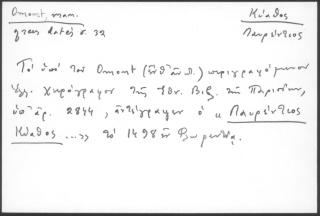 Omont, man. Κύαθος
grecs datés σ. 32 Λαυρέντιος
Τὸ ὑπὸ τοῦ Omont (ἔνθ' ἀν.) περιγραφόμενον
χειρόγραφον τῆς Ἐθν. Βιβ. τῶν Παρισίων,
ὑπ' ἀρ. 2844, ἀντέγραψεν ὁ « Λαυρέντιος
Κύαθος ...» τὸ 1498 ἐν Φλωρεντίᾳ.